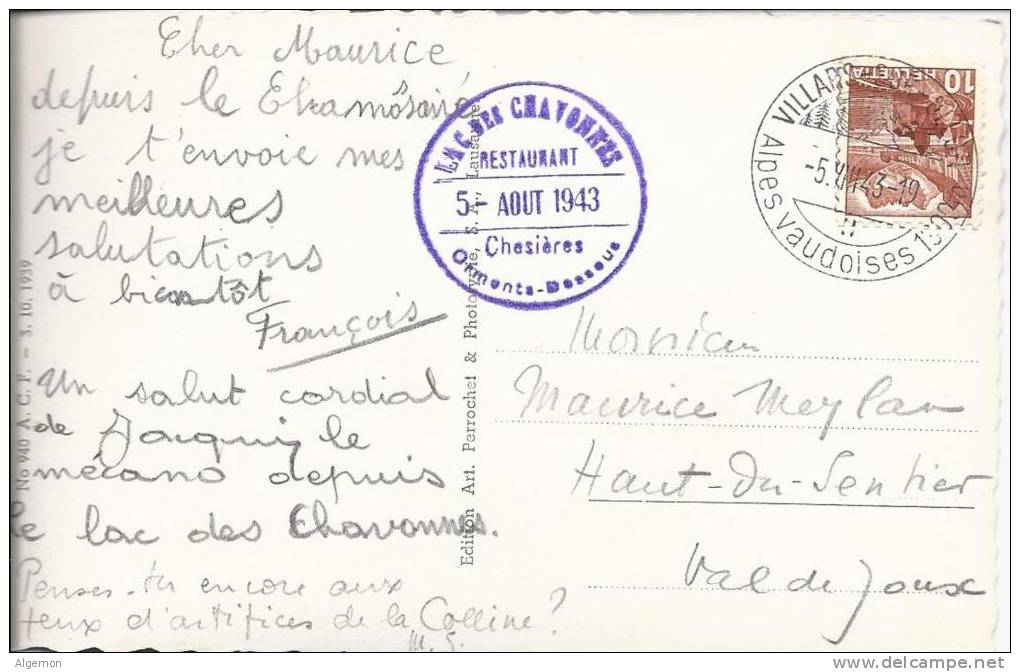 Cher Maurice
depuis le Chamôsaire
je t'envoie mes
meilleures
salutations
à bientôt
François
Un salut cordial
de Jacquy le
mécano depuis
le lac des Chavonnes.
Penses-tu encore aux
feux d'artifices de la Colline?
M. S.
No 940 A. C. F. — 3. 10. 1939
Edition Art. Perrochet & Phototypie, S. A., Lausanne
LAC DES CHAVONNES
RESTAURANT
5 AOUT 1943
Chesières
Ormonts-Dessous
VILLARS
-5.VIII.43-19
Alpes vaudoises
HELVETIA
10
Monsieur
Maurice Meylan
Haut-du-Sentier
Val de Joux
Algemon